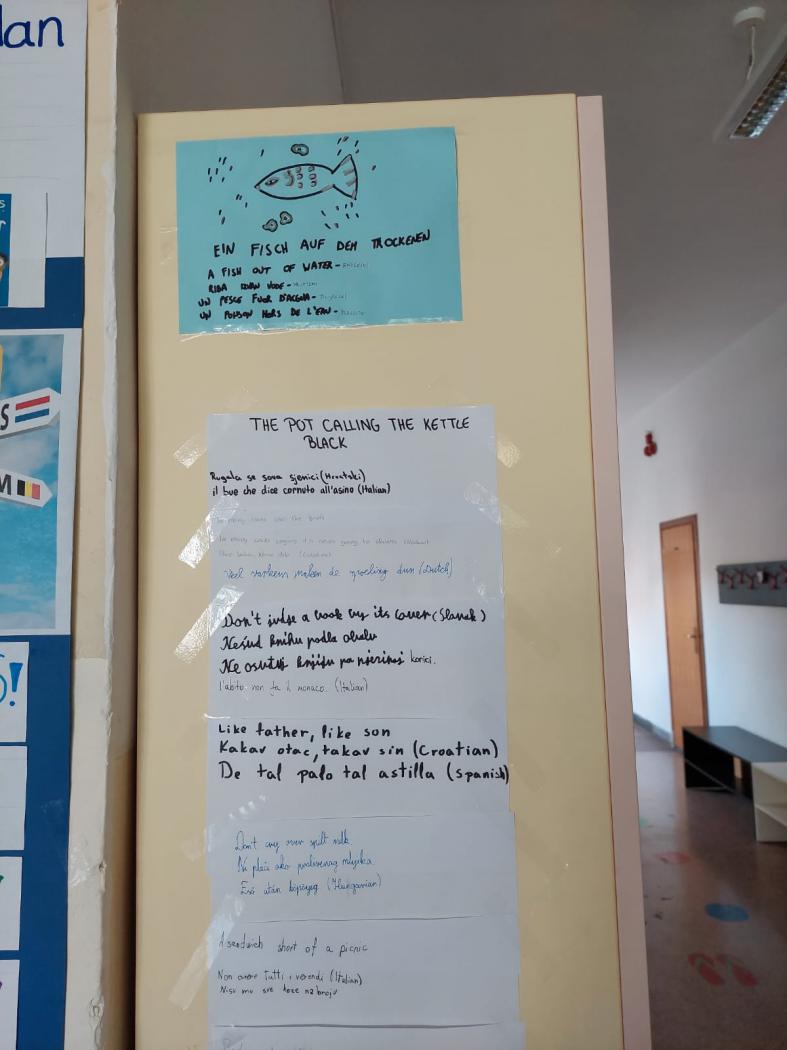 lan
EIN FISCH AUF DEM TROCKENEN
A FISH OUT OF WATER - ENGLISH
RIBA IZVAN VODE -
UN PESCE FUOR D'ACQUA -
UN POISSON HORS DE L'EAU -
S
M
THE POT CALLING THE KETTLE
BLACK
Rugala se sova sjenici (Hrvatski)
il bue che dice cornuto all'asino (Italian)
Too many cooks spoil the broth
Veel varkens maken de spoeling dun (Dutch)
Don't judge a book by its cover (Slovak)
Nesúd knihu podla obalu
Ne osuđuj knjigu po njezinoj korici.
l'abito non fa il monaco. (Italian)
Like father, like son
Kakav otac, takav sin (Croatian)
De tal palo tal astilla (Spanish)
Don't cry over spilt milk
Ne plači ako prolivenog mlijeka
Eső után köpönyeg (Hungarian)
A sandwich short of a picnic
Non avere tutti i venerdì (Italian)
Nisu mu sve koze na broju
!